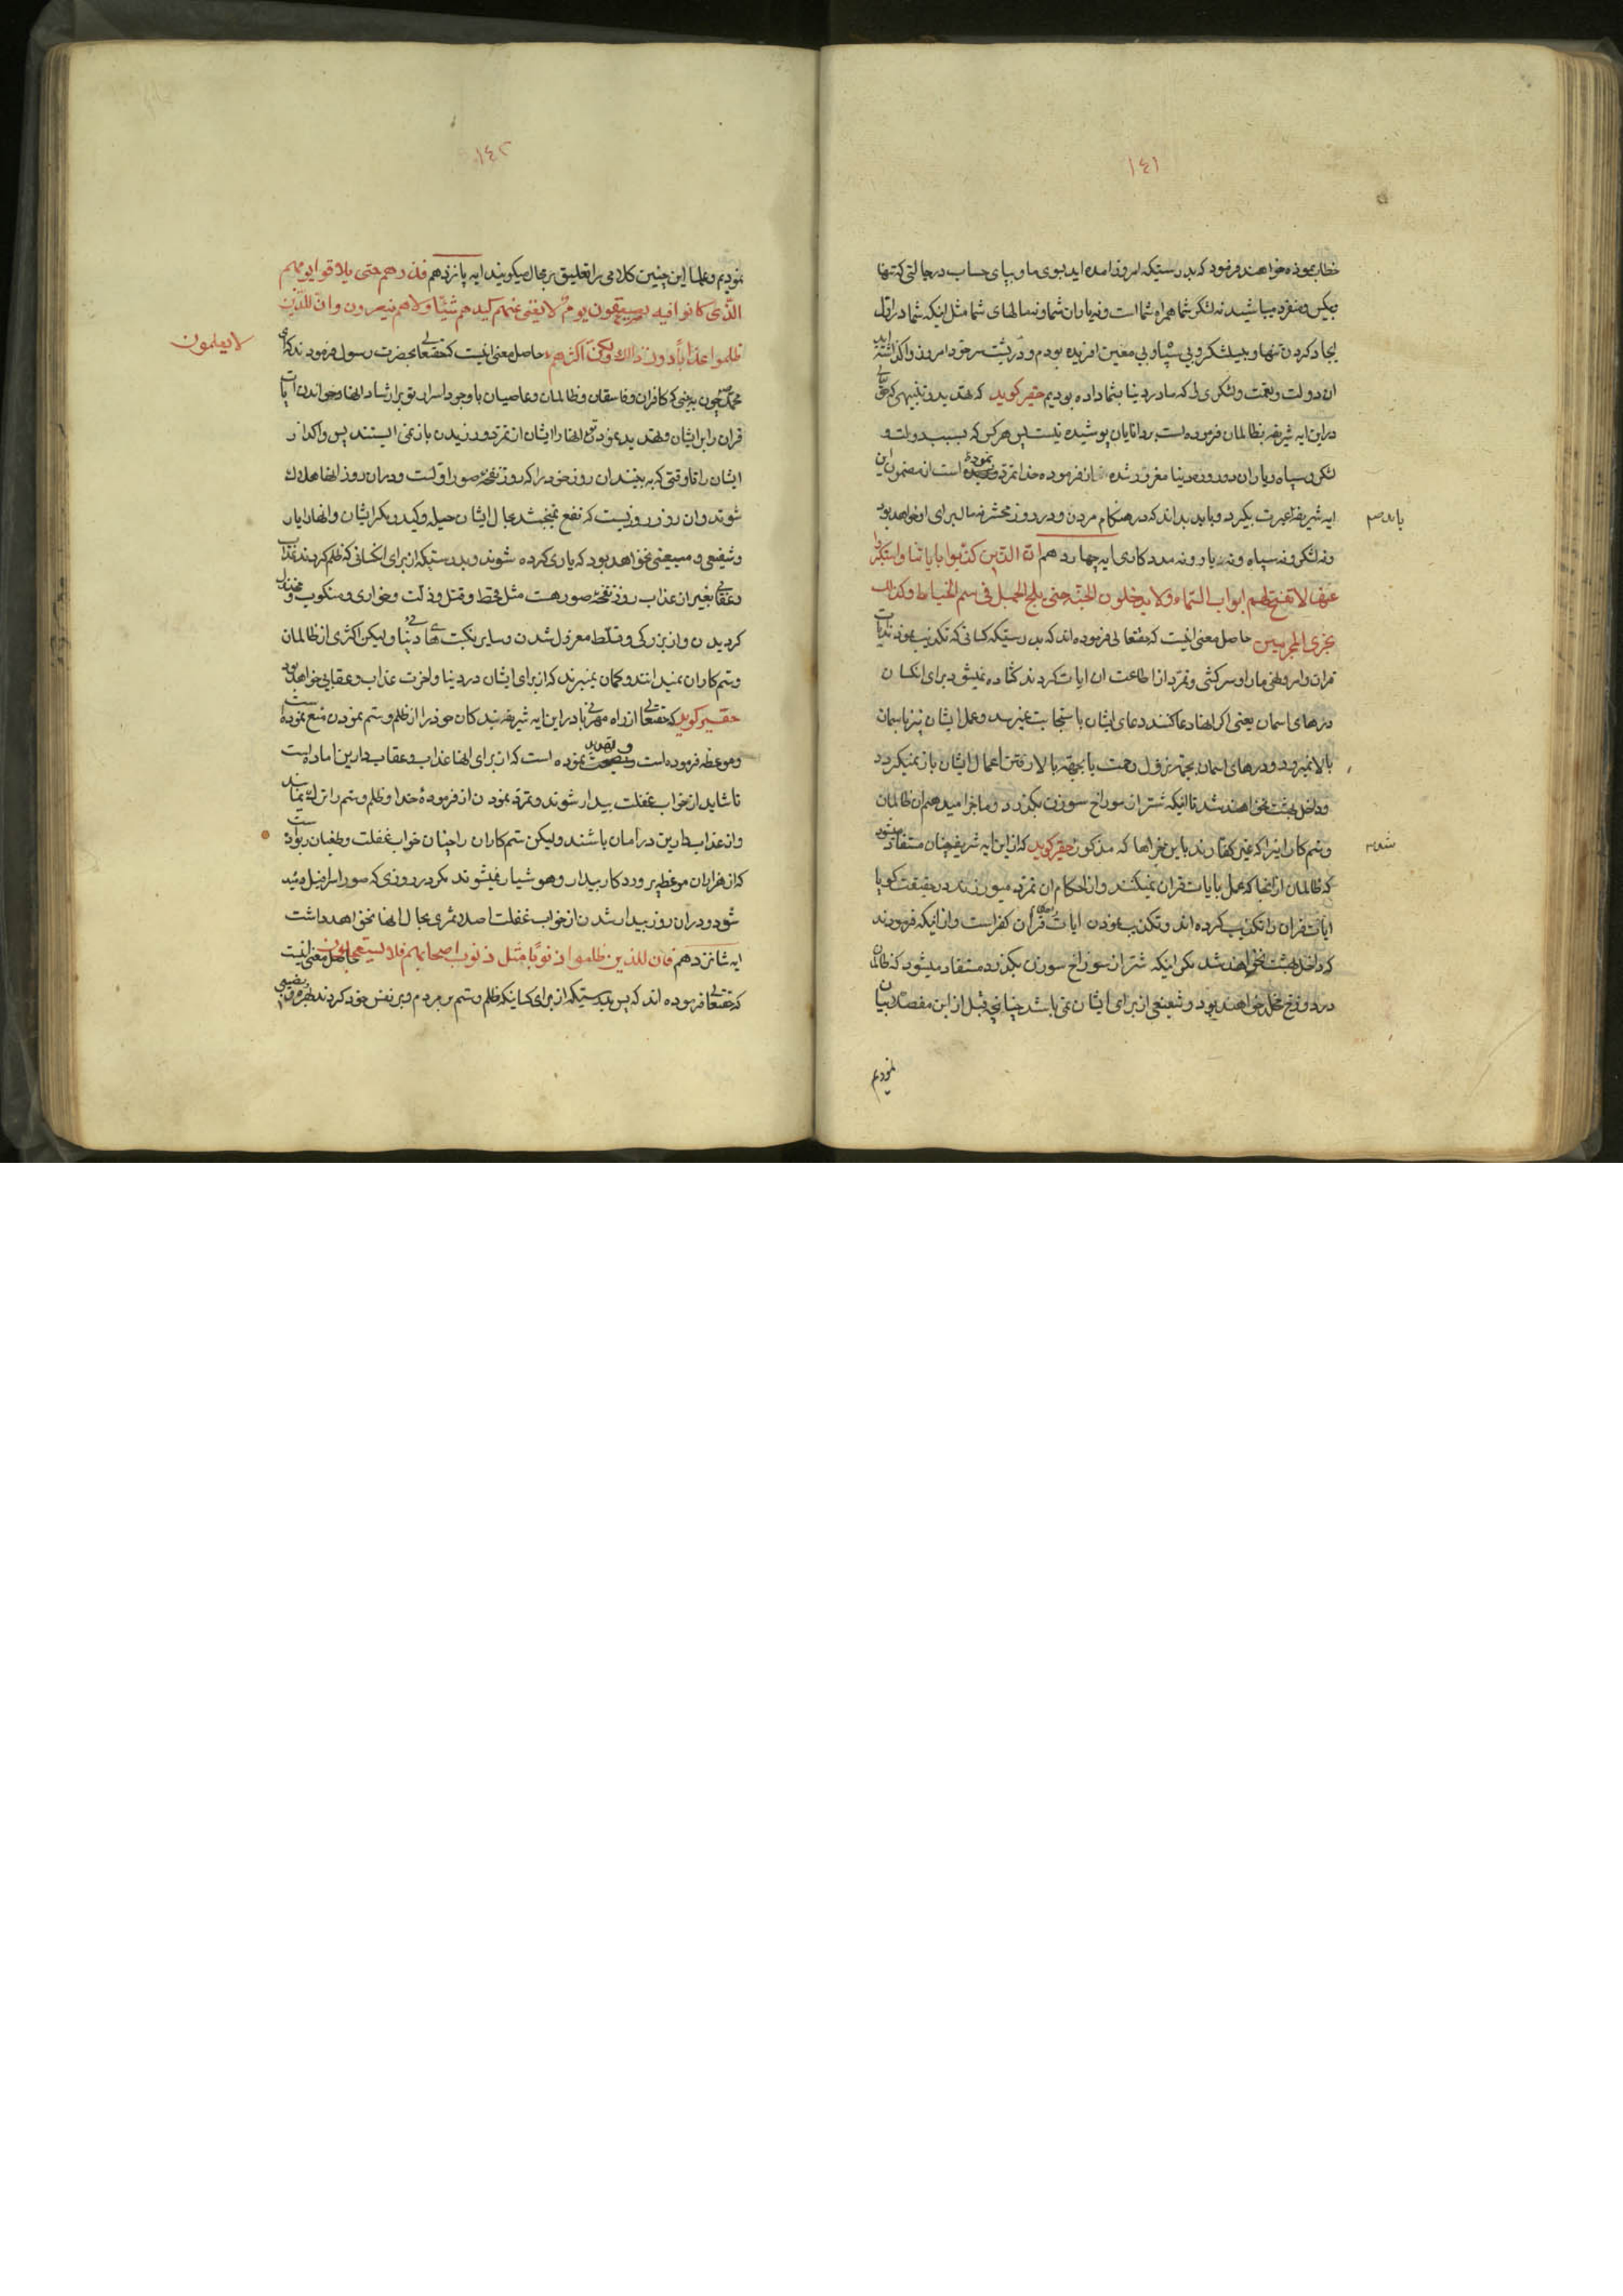 ١٤١
خطاب نموده خواهند فرمود که بدرستیکه امروز آمده اید بسوی ما و بپای حساب در حالتی که تنها
بیکس و منفرد میباشید نه لشکر شما همراه شما است و نه یاوران شما و نه مالهای شما مثل اینکه شما در اول
ایجاد کردن تنها و بیلشکر و بی سپاه و بی معین آفریده بودم و در پشت سر خود امروز واگذاشته اید
ان دولت و نعمت و لشکری را که ما در دنیا بشما داده بودیم حقیر کوید که تهدید و تنبیهی که حقتعالی
در این ایه شریفه بظالمان فرموده است بر دانایان پوشیده نیست پس هر کس که بسبب دولت و
لشکر و سپاه و یاران دو روزه دنیا مغرور شده از فرموده خدا تمرد نموده است از مضمون این
ایه شریفه عبرت بکیرد و باید بداند که در هنکام مردن و در روز محشر نه مال برای او خواهد بود
ونه لشکر ونه سپاه ونه یار ونه مددکاری ایه چهاردهم ان الذین کذبوا بایاتنا واستکبروا
عنها لا تفتح لهم ابواب السماء ولا یدخلون الجنة حتی یلج الجمل فی سم الخیاط وکذلک
نجزی المجرمین حاصل معنی اینست که حقتعالی فرموده اند که بدرستیکه کسانی که تکذیب نمودند بایات
قران وامر ونهی ما را و سرکشی و تمرد از اطاعت ان ایات کردند کشاده نمیشود برای انکسان
درهای اسمان یعنی اکر انها دعا کنند دعای ایشان باستجابت نمیرسد و عمل ایشان نیز باسمان
بالا نمیرود و درهای اسمان بجهة نزول رحمت یا بجهة بالا رفتن اعمال ایشان باز نمیکردد
و داخل بهشت نخواهند شد تا اینکه شتر از سوراخ سوزن بکذرد و ما جزا میدهیم ان ظالمان
و ستم کارانیرا که باین جزاها که مذکور حقیر کوید که از این ایه شریفه چنان مستفاد میشود
که ظالمان از انجا که عمل بایات قران نمیکنند و از احکام ان تمرد میورزند در حقیقت کویا
ایات قران را تکذیب کرده اند و تکذیب نمودن ایات قران کفر است و از اینکه فرمودند
که داخل بهشت نخواهند شد مکر اینکه شتر از سوراخ سوزن بکذرد مستفاد میشود که ظالمان
در دوزخ مخلد خواهند بود و شفیعی از برای ایشان نمی باشد چنانچه قبل از این مفصلا بیان
نمودیم
١٤٢
نمودیم وعلما این چنین کلامی را تعلیق بر محال میکویند ایه پانزدهم فذرهم حتی یلاقوا یومهم
الذی کانوا فیه یصعقون یوم لا یغنی عنهم کیدهم شیئا ولا هم ینصرون وان للذین
ظلموا عذابا دون ذلک ولکن اکثرهم حاصل معنی اینست که حقتعالی بحضرت رسول فرمودند که ای
لا یعلمون
محمد چون کافران و فاسقان و ظالمان و عاصیان با وجود اسرار تو بر ارشاد انها و خواندن ایات
قران را بر ایشان و تهدید نمودن انها را ایشان از تمرد ورزیدن باز نمی ایستند پس واکذار
ایشان را تا وقتی که به بینند ان روز خود را که روز نفخه صور اولست و در ان روز انها هلاک
شوند و ان روز روزیست که نفع نمیبخشد بحال ایشان حیله و کید و مکر ایشان و انها را یار
و شفیعی و معینی نخواهد بود که یاری کرده شوند و بدرستیکه از برای انکسانی که ظلم کردند عذاب
و عقابی بغیر از عذاب روز نفخه صور هست مثل قحط و قتل و ذلت و خواری و منکوب و مخذول
کردیدن و از بزرکی و تسلط معزول شدن و سایر نکبت های دنیا ولیکن اکثری از ظالمان
و ستم کاران نمیدانند و کمان نمیبرند که از برای ایشان در دنیا و اخرت عذاب و عقابی خواهد بود
حقیر کوید که حقتعالی از راه مهربانی در این ایه شریفه بندکان خود را از ظلم و ستم نمودن منع نموده است
و موعظه فرموده است و تهدید نموده است که از برای انها عذاب و عقاب دارین اماده است
تا شاید از خواب غفلت بیدار شوند و تمرد نمودن از فرموده خدا و ظلم و ستم را ترک نمایند
و از عذاب دارین در امان باشند ولیکن ستم کاران را چنان خواب غفلت و طغیان ربوده است
که از هزاران موعظه پروردکار بیدار و هوشیار نمیشوند مکر در روزی که صور اسرافیل دمیده
شود و در ان روز بیدار شدن از خواب غفلت اصلا ثمری بحال انها نخواهد داشت
ایه شانزدهم فان للذین ظلموا ذنوبا مثل ذنوب اصحابهم فلا یستعجلون حاصل معنی اینست
که حقتعالی فرموده اند که پس بدرستیکه از برای کسانیکه ظلم و ستم بر مردم و بر نفس خود کردند بهره و نصیبی